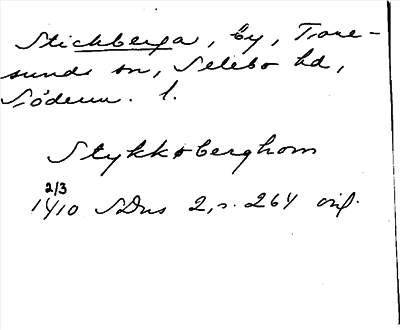 Stickberga, by, Tore-
sunds sn, Selebo hd,
Söderm. l.
Stykkoberghom
2/3
1410 SDns 2, s. 264 orig.